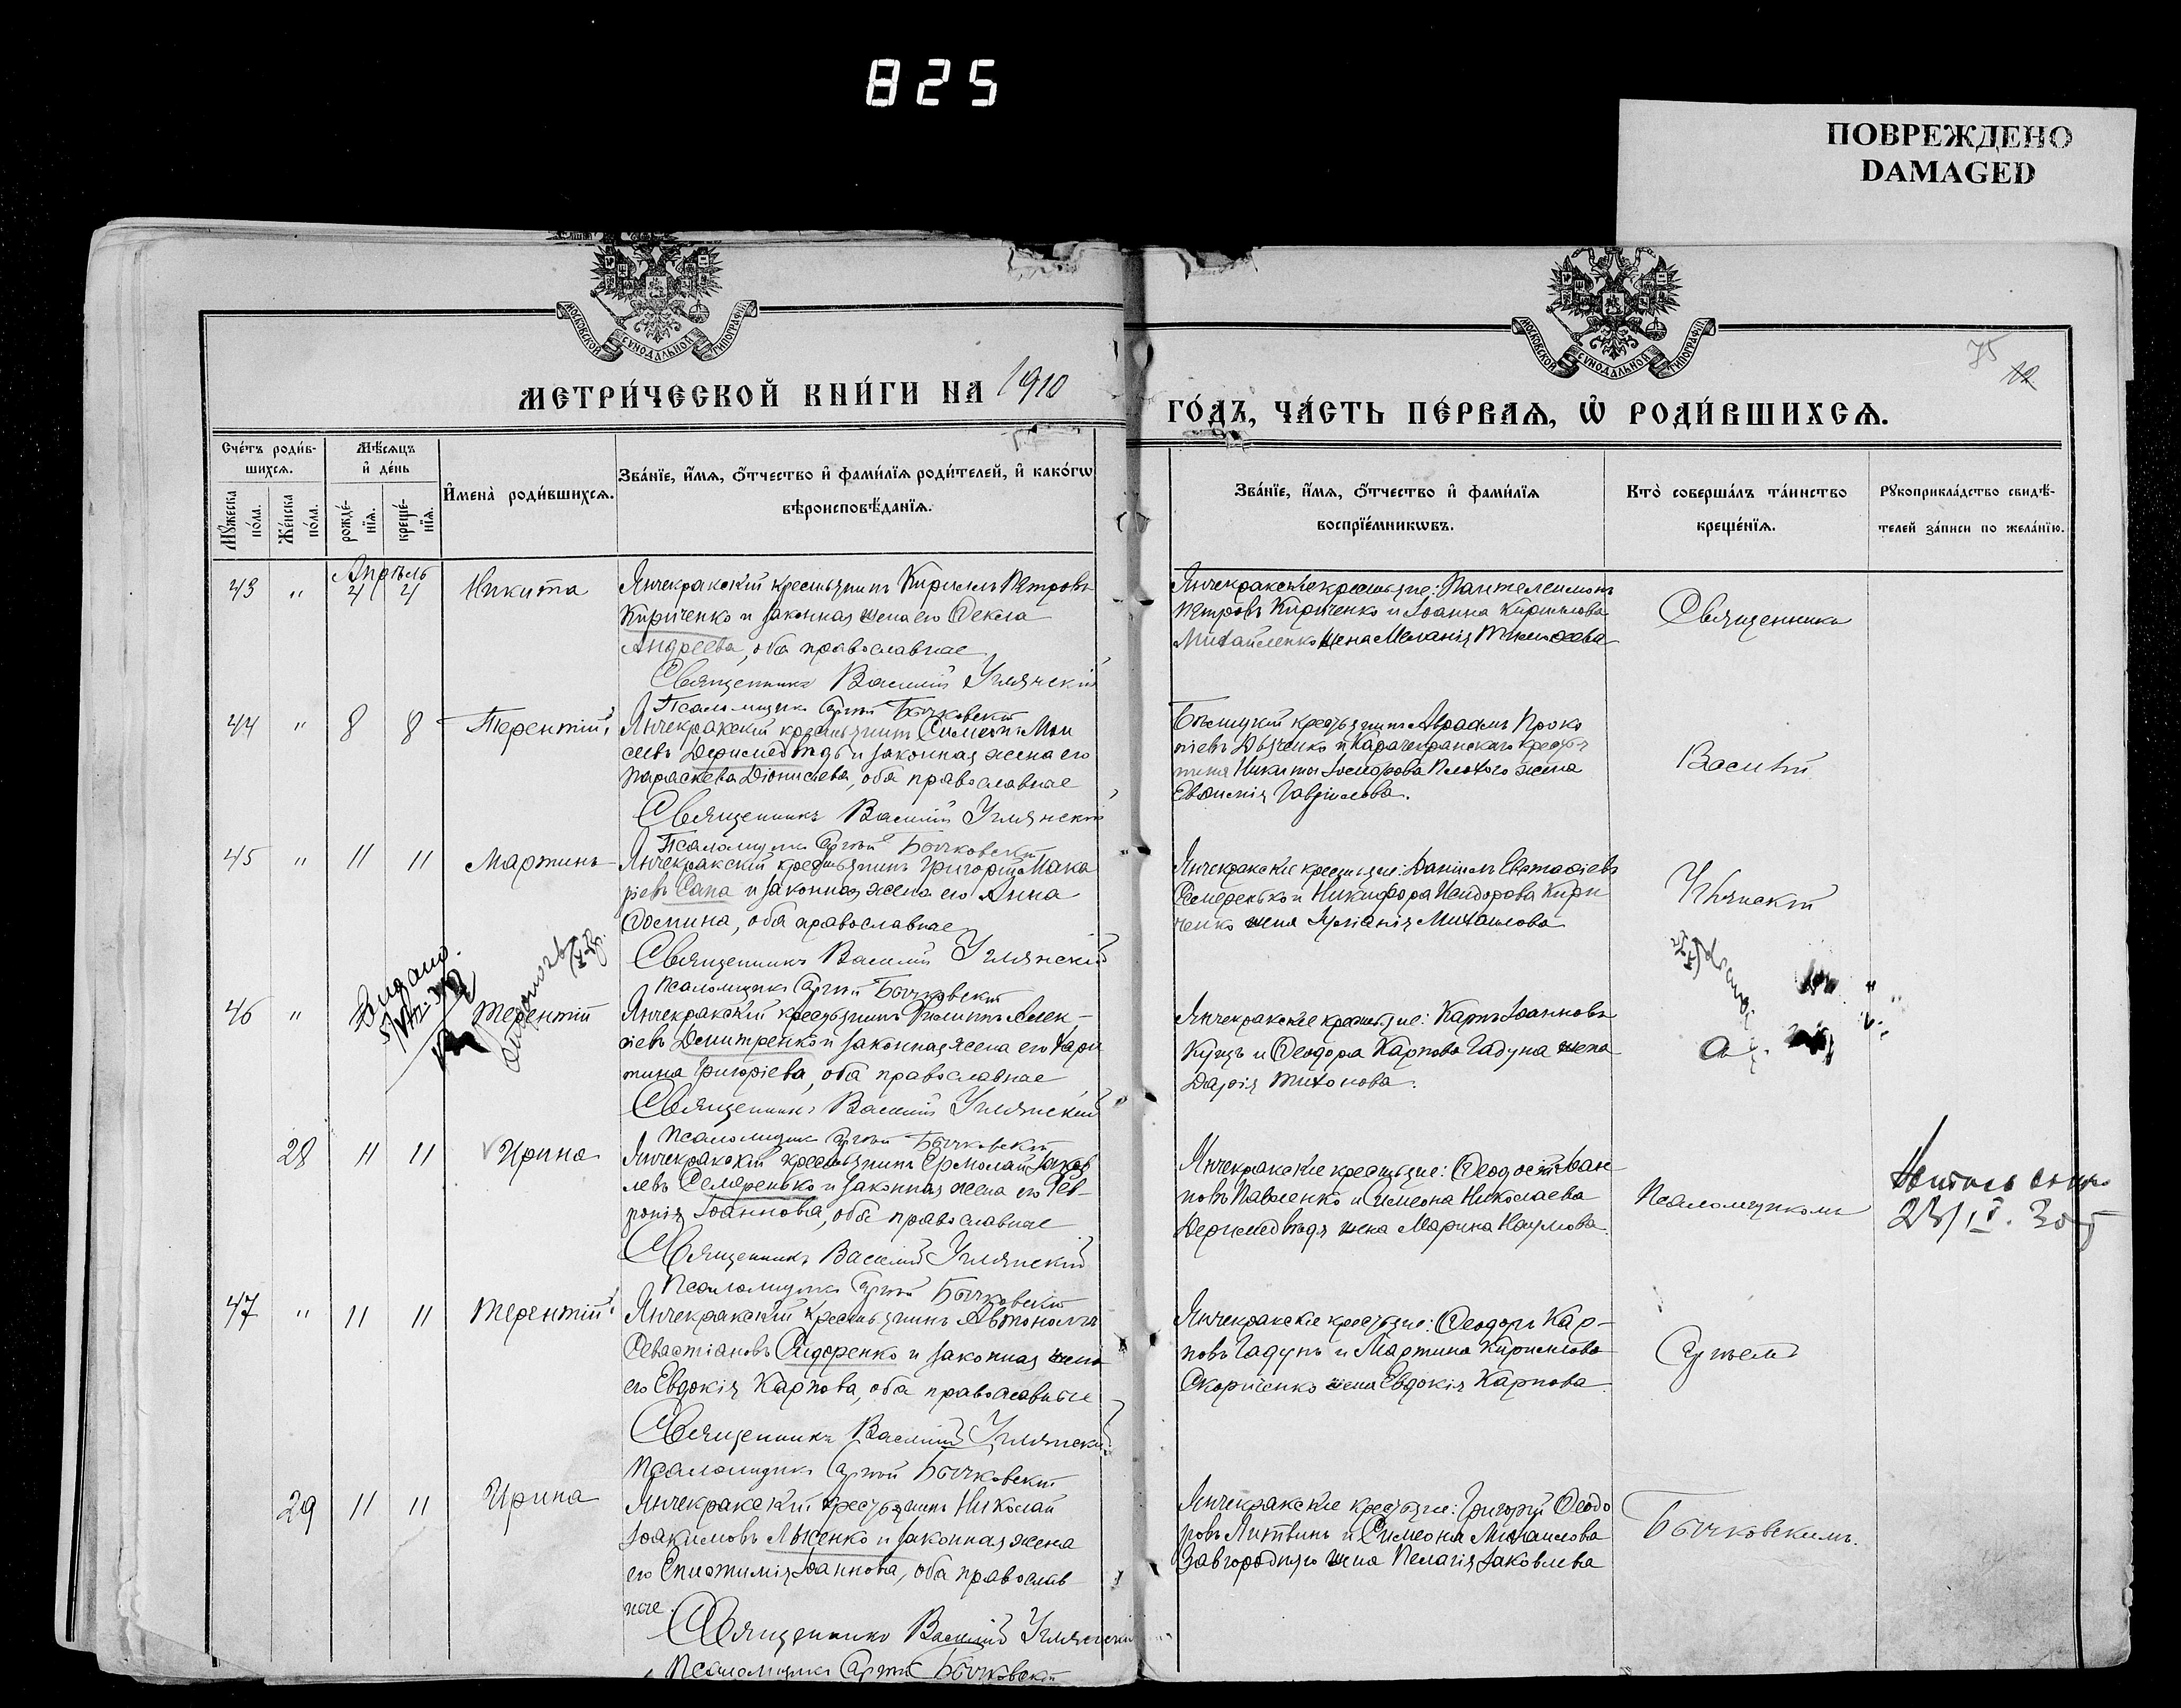 825
ПОВРЕЖДЕНО
DAMAGED
МОСКОВСКОЙ СѴНОДАЛЬНОЙ ТИПОГРАФІИ
МОСКОВСКОЙ СѴНОДАЛЬНОЙ ТИПОГРАФІИ
75
12
МЕТРИ́ЧЕСКОЙ КНИ́ГИ НА 1910
ГО́ДЪ, ЧА́СТЬ ПЕ́РВАѦ, Ѡ҆ РОДИ́ВШИХСѦ.
Сче́тъ роди́в-
шихсѧ.
Мѣ́сѧцъ
и҆ де́нь
Мꙋ́жеска
по́ла.
Же́нска
по́ла.
рожде́-
нїѧ.
креще́-
нїѧ.
И҆мена̀ роди́вшихсѧ.
Зва́нїе, и҆́мѧ, о҆́тчество и҆ фами́лїѧ роди́телей, и҆ како́гѡ
вѣроисповѣ́данїѧ.
Зва́нїе, и҆́мѧ, о҆́тчество и҆ фами́лїѧ
воспрїе́мникѡвъ.
Кто̀ соверша́лъ та́инство
креще́нїѧ.
Рꙋкоприкла́дство свидѣ́-
телей за́писи по жела́нїю.
Апрѣль
43 " 4 4 Никита
Янчекракскій крестьянинъ Кириллъ Петровъ
Кириченко и законная жена его Ѳекла
Андреева, оба православные
Священникъ Василій Углянскій
Псаломщикъ Сергѣй Бычковскій
Янчекракскіе крестьяне: Пантелеимонъ
Петровъ Кириченко и Іоанна Кириллова
Михайленко жена Меланія Тимоѳеева
Священникъ
44 " 8 8 Терентій
Янчекракскій крестьянинъ Симеонъ Мои
сеевъ Деримедвѣдь и законная жена его
Параскева Діонисьева, оба православные
Священникъ Василій Углянскій
Псаломщикъ Сергѣй Бычковскій
крестьянинъ Авраамъ Проко
піевъ Дьяченко и Карачекракскаго крестья
нина Никиты Плохого жена
Евѳимія Гавріилова.
Василій
45 " 11 11 Мартинъ
Янчекракскій крестьянинъ Григорій Мака
ріевъ Сапа и законная жена его Анна
Ѳомина, оба православные
Священникъ Василій Углянскій
Псаломщикъ Сергѣй Бычковскій
Янчекракскіе крестьяне: Даніилъ Евстаѳіевъ
Семеренько и Никифора Исидорова Кири
ченко жена Іуліанія Михаилова
Углянскій
Видано.
46 " Терентій
Янчекракскій крестьянинъ Филиппъ Алек-
сіевъ Дмитренко и законная жена его Хари
тина Григоріева, оба православные
Священникъ Василій Углянскій
Псаломщикъ Сергѣй Бычковскій
Янчекракскіе крестьяне: Карпъ Іоанновъ
Куцъ и Ѳеодора Карпова Гадуна жена
Дарія Тихонова.
28 11 11 Ирина
Янчекракскій крестьянинъ Ермолай Іаков
левъ Семеренько и законная жена его Фев-
ронія Іоаннова, оба православные
Священникъ Василій Углянскій
Псаломщикъ Сергѣй Бычковскій
Янчекракскіе крестьяне: Ѳеодосій Іоан
новъ Павленко и Симеона Николаева
Деримедвѣдя жена Марина Наумова.
Псаломщикомъ
47 " 11 11 Терентій
Янчекракскій крестьянинъ Автономъ
Севастіановъ Сидоренко и законная жена
его Евдокія Карпова, оба православные
Священникъ Василій Углянскій
Псаломщикъ Сергѣй Бычковскій
Янчекракскіе крестьяне: Ѳеодоръ Кар-
повъ Гадунъ и Мартина Кириллова
Скориченко жена Евдокія Карпова
Сергѣемъ
29 11 11 Ирина
Янчекракскій крестьянинъ Николай
Іоакимовъ Лысенко и законная жена
его Епистимія Іоаннова, оба православ
ные.
Священникъ Василій Углянскій
Псаломщикъ Сергѣй Бычковскій
Янчекракскіе крестьяне: Григорій Ѳеодо
ровъ Литвинъ и Симеона Михаилова
Завгороднято жена Пелагія Іаковлева
Бычковскимъ.